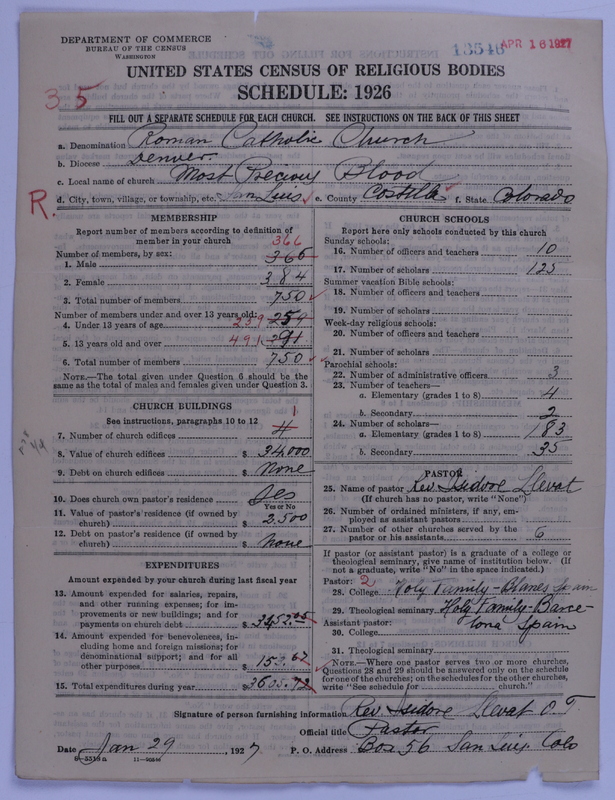 DEPARTMENT OF COMMERCE
BUREAU OF THE CENSUS
WASHINGTON
13546 APR 16 1927
UNITED STATES CENSUS OF RELIGIOUS BODIES
SCHEDULE: 1926
35
FILL OUT A SEPARATE SCHEDULE FOR EACH CHURCH. SEE INSTRUCTIONS ON THE BACK OF THIS SHEET
a. Denomination Roman Catholic Church
b. Diocese Denver
c. Local name of church Most Precious Blood
d. City, town, village, or township, etc. San Luis e. County Costilla f. State Colorado
R.
MEMBERSHIP
Report number of members according to definition of
member in your church
Number of members, by sex: 366
1. Male 366
2. Female 384
3. Total number of members 750
Number of members under and over 13 years old:
4. Under 13 years of age 259 259
5. 13 years old and over 491 291
6. Total number of members 750
NOTE.—The total given under Question 6 should be the
same as the total of males and females given under Question 3.
CHURCH BUILDINGS
See instructions, paragraphs 10 to 12 1
7. Number of church edifices 4
8. Value of church edifices $ 34,000
9. Debt on church edifices $ None
10. Does church own pastor's residence Yes
Yes or No
11. Value of pastor's residence (if owned by
church) $ 2,500
12. Debt on pastor's residence (if owned by
church) $ None
EXPENDITURES
Amount expended by your church during last fiscal year
13. Amount expended for salaries, repairs,
and other running expenses; for im-
provements or new buildings; and for
payments on church debt $ 3452.05
14. Amount expended for benevolences, in-
cluding home and foreign missions; for
denominational support; and for all
other purposes $ 153.67
15. Total expenditures during year $ 3605.72
CHURCH SCHOOLS
Report here only schools conducted by this church
Sunday schools:
16. Number of officers and teachers 10
17. Number of scholars 125
Summer vacation Bible schools:
18. Number of officers and teachers
19. Number of scholars
Week-day religious schools:
20. Number of officers and teachers
21. Number of scholars
Parochial schools:
22. Number of administrative officers 3
23. Number of teachers—
a. Elementary (grades 1 to 8) 4
b. Secondary 2
24. Number of scholars—
a. Elementary (grades 1 to 8) 183
b. Secondary 35
PASTOR
25. Name of pastor Rev. Isidore Llevat
(If church has no pastor, write "None")
26. Number of ordained ministers, if any, em-
ployed as assistant pastors
27. Number of other churches served by the
pastor or his assistants 6
If pastor (or assistant pastor) is a graduate of a college or
theological seminary, give name of institution below. (If
not a graduate, write "No" in the space indicated.)
Pastor: 2
28. College Holy Family-Blanes Spain
29. Theological seminary Holy Family-Barce-
Assistant pastor: lona Spain
30. College
31. Theological seminary
NOTE.—Where one pastor serves two or more churches,
Questions 28 and 29 should be answered only on the schedule
for one of the churches; on the schedules for the other churches,
write "See schedule for church."
Signature of person furnishing information Rev. Isidore Llevat
Official title Pastor
Date Jan 29, 1927 P. O. Address Box 56 San Luis, Colo
8—5313a 11—90346